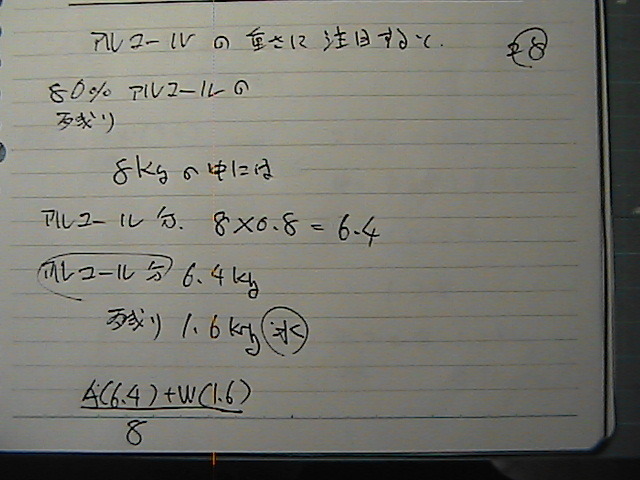 アルコールの重さに注目すると.
80% アルコールの
残り
8kgの中には
アルコール分. 8×0.8 = 6.4
アルコール分 6.4kg
残り 1.6kg 水
A(6.4)+W(1.6)
8